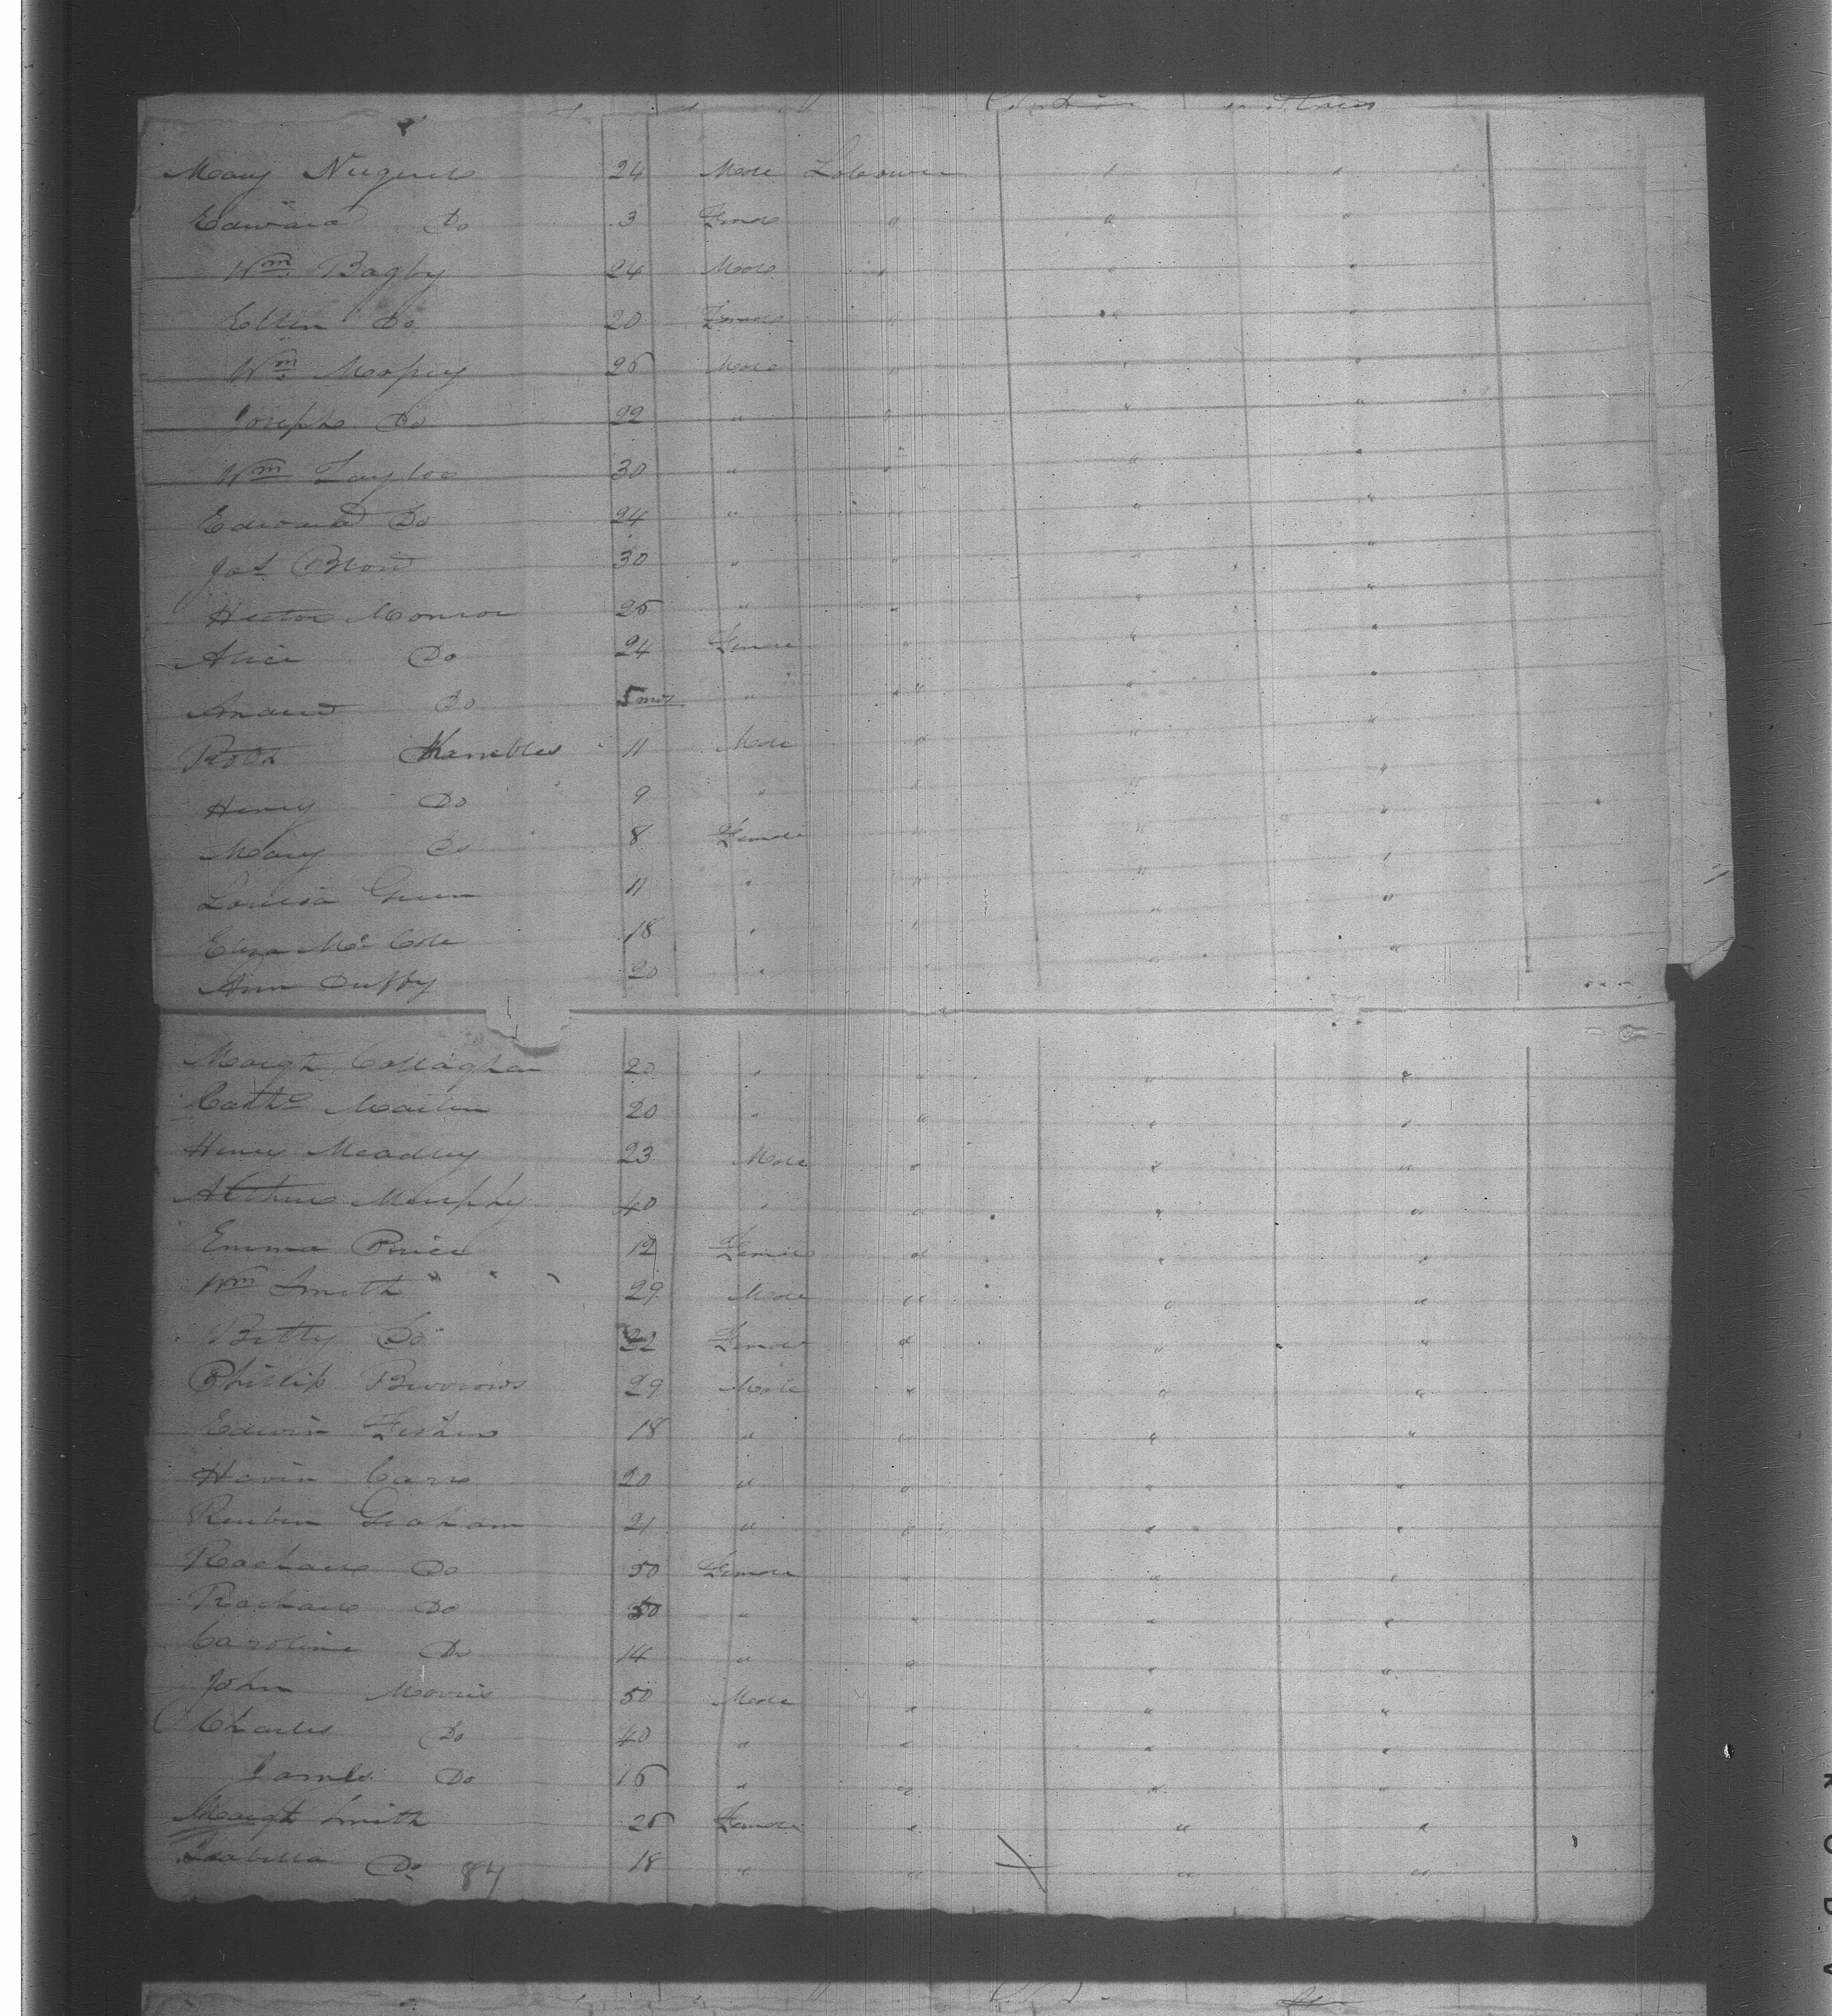 States
Mary Nugent 24 Male Labourer " "
Edward Do 3 Female " " "
Wm Bagby 24 Male " " "
Ellen Do 20 Female " " "
Wm 25 Male " " "
Joseph Do 22 " " " "
Wm Taylor 30 " " " "
Edward Do 24 " " " "
Jas 30 " " " "
Hector Monroe 25 " " " "
Alice Do 24 Female " " "
Do 5 mos " " " "
Robt Kambles 11 Male " " "
Henry Do 9 " " " "
Mary Do 8 Female " " "
Louisa Green 11 " " " "
Eliza Mc Cole 18 " " " "
Ann Duffy 20 " " " "
Margt Callaghan 20 " " " "
Cathe Martin 20 " " " "
Henry Meadley 23 Male " " "
Arthur Murphy 40 " " " "
Emma Price 19 Female " " "
Wm Smith 29 Male " " "
Betty Do 22 Female " " "
Phillip Burrows 29 Male " " "
Edwin Fisher 18 " " " "
Carr 20 " " " "
Reuben Graham 21 " " " "
Do 50 Female " " "
Do 30 " " " "
Caroline Do 14 " " " "
John Morris 50 Male " " "
Charles Do 40 " " " "
James Do 16 " " " "
Margt Smith 25 Female " " "
Isabella Do 84 18 " " " "